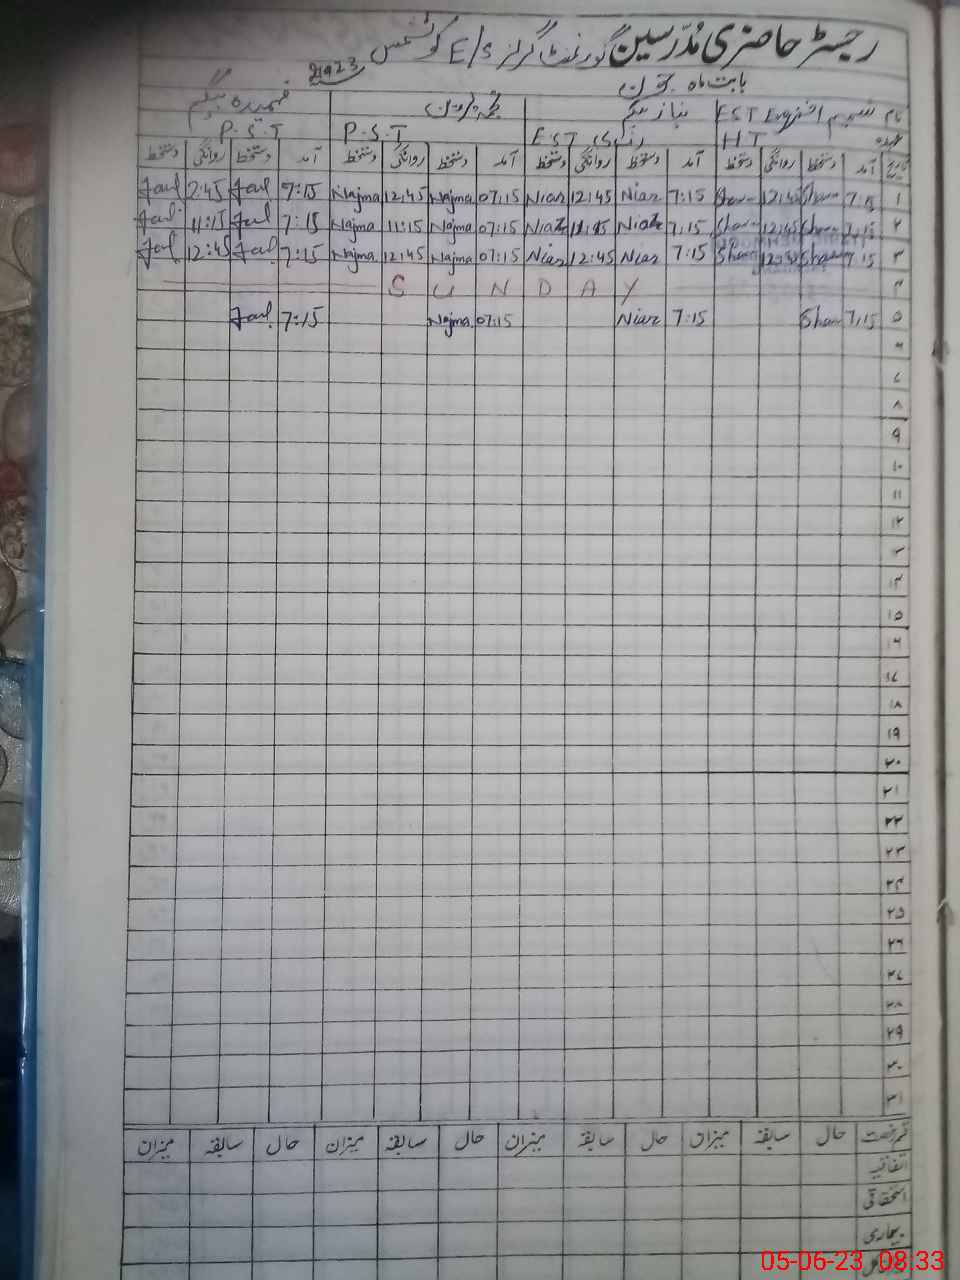 رجسٹر حاضری مُدرّسین گورنمنٹ گرلز E/S
بابت ماہ جون 2023
نام شمیم اختر EST نیاز بیگم نجمہ پروین فہمیدہ بیگم
عہدہ HT EST P.S.T P.S.T
تاریخ آمد دستخط روانگی دستخط آمد دستخط روانگی دستخط آمد دستخط روانگی دستخط آمد دستخط روانگی دستخط
۱ 7:15 Sham 12:45 Sham 7:15 Niaz 12:45 Niaz 07:15 Najma 12:45 Najma 7:15 2:45
۲ 7:15 Sham 12:45 Sham 7:15 Niaz 11:15 Niaz 07:15 Najma 11:15 Najma 7:15 11:15
۳ 7:15 Sham Sham 7:15 Niaz 12:45 Niaz 07:15 Najma 12:45 Najma 7:15 12:45
۴ SUNDAY
۵ 7:15 Sham 7:15 Niaz 07:15 Najma 7:15
۶
۷
۸
۹
۱۰
۱۱
۱۲
۱۴
۱۵
۱۶
۱۷
۱۸
۱۹
۲۰
۲۱
۲۲
۲۳
۲۴
۲۵
۲۶
۲۷
۲۸
۲۹
۳۰
۳۱
رخصت حال سابقہ میزان حال سابقہ میزان حال سابقہ میزان حال سابقہ میزان
اتفاقیہ
استحقاقی
بیماری
05-06-23 08:33